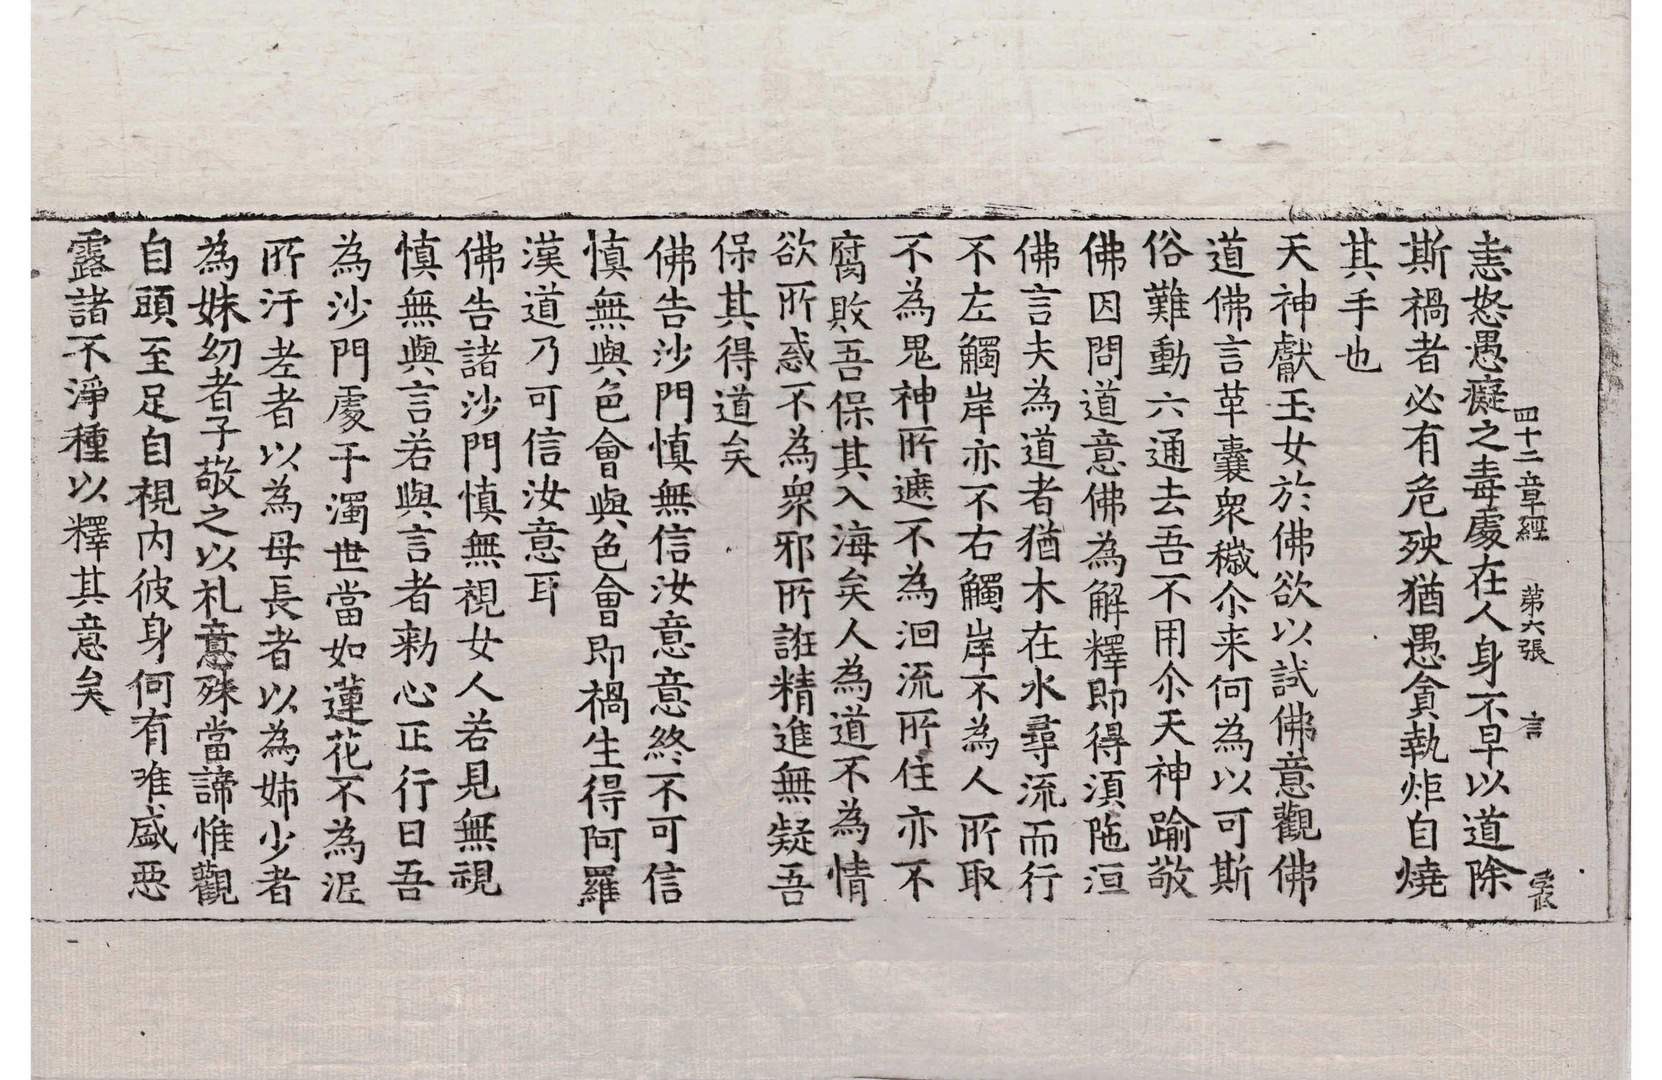 四十二章經 第六張 言
恚怒愚癡之毒處在人身不早以道除
斯禍者必有危殃猶愚貪執炬自燒
其手也
天神獻玉女於佛欲以試佛意觀佛
道佛言革囊衆穢尒来何為以可斯
俗難動六通去吾不用尒天神踰敬
佛因問道意佛為解釋即得湏陁洹
佛言夫為道者猶木在水尋流而行
不左觸岸亦不右觸岸不為人所取
不為鬼神所遮不為洄流所住亦不
腐敗吾保其入海矣人為道不為情
欲所惑不為衆邪所誑精進無疑吾
保其得道矣
佛告沙門慎無信汝意意終不可信
慎無與色會與色會即禍生得阿羅
漢道乃可信汝意耳
佛告諸沙門慎無視女人若見無視
慎無與言若與言者勑心正行曰吾
為沙門處于濁世當如蓮花不為泥
所汙老者以為母長者以為姉少者
為妹幼者子敬之以礼意殊當諦惟觀
自頭至足自視内彼身何有唯盛惡
露諸不淨種以釋其意矣